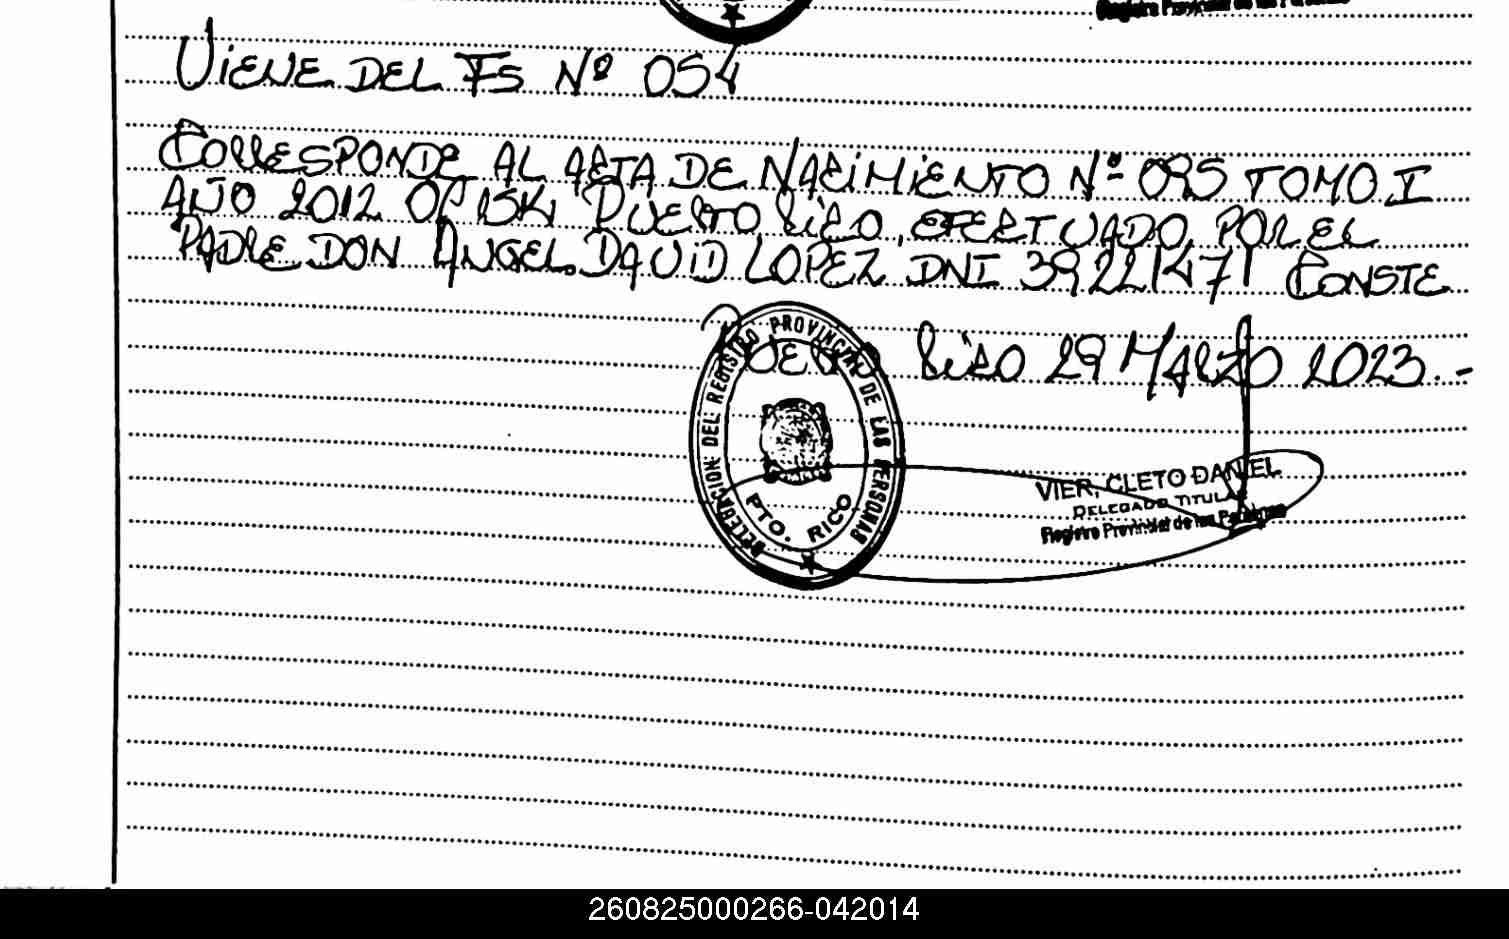 Registro Provincial de las Personas
VIENE DEL FS Nº 054
CORRESPONDE AL ACTA DE NACIMIENTO Nº 095 TOMO I
AÑO 2012 PUERTO RICO, EFECTUADO POR EL
PADRE DON ANGEL DAVID LOPEZ DNI 39221471 CONSTE
PUERTO RICO 29 MARZO 2023.-
DELEGACION DEL REGISTRO PROVINCIAL DE LAS PERSONAS
PTO. RICO
VIER, CLETO DANIEL
DELEGADO TITULAR
Registro Provincial de las Personas
260825000266-042014